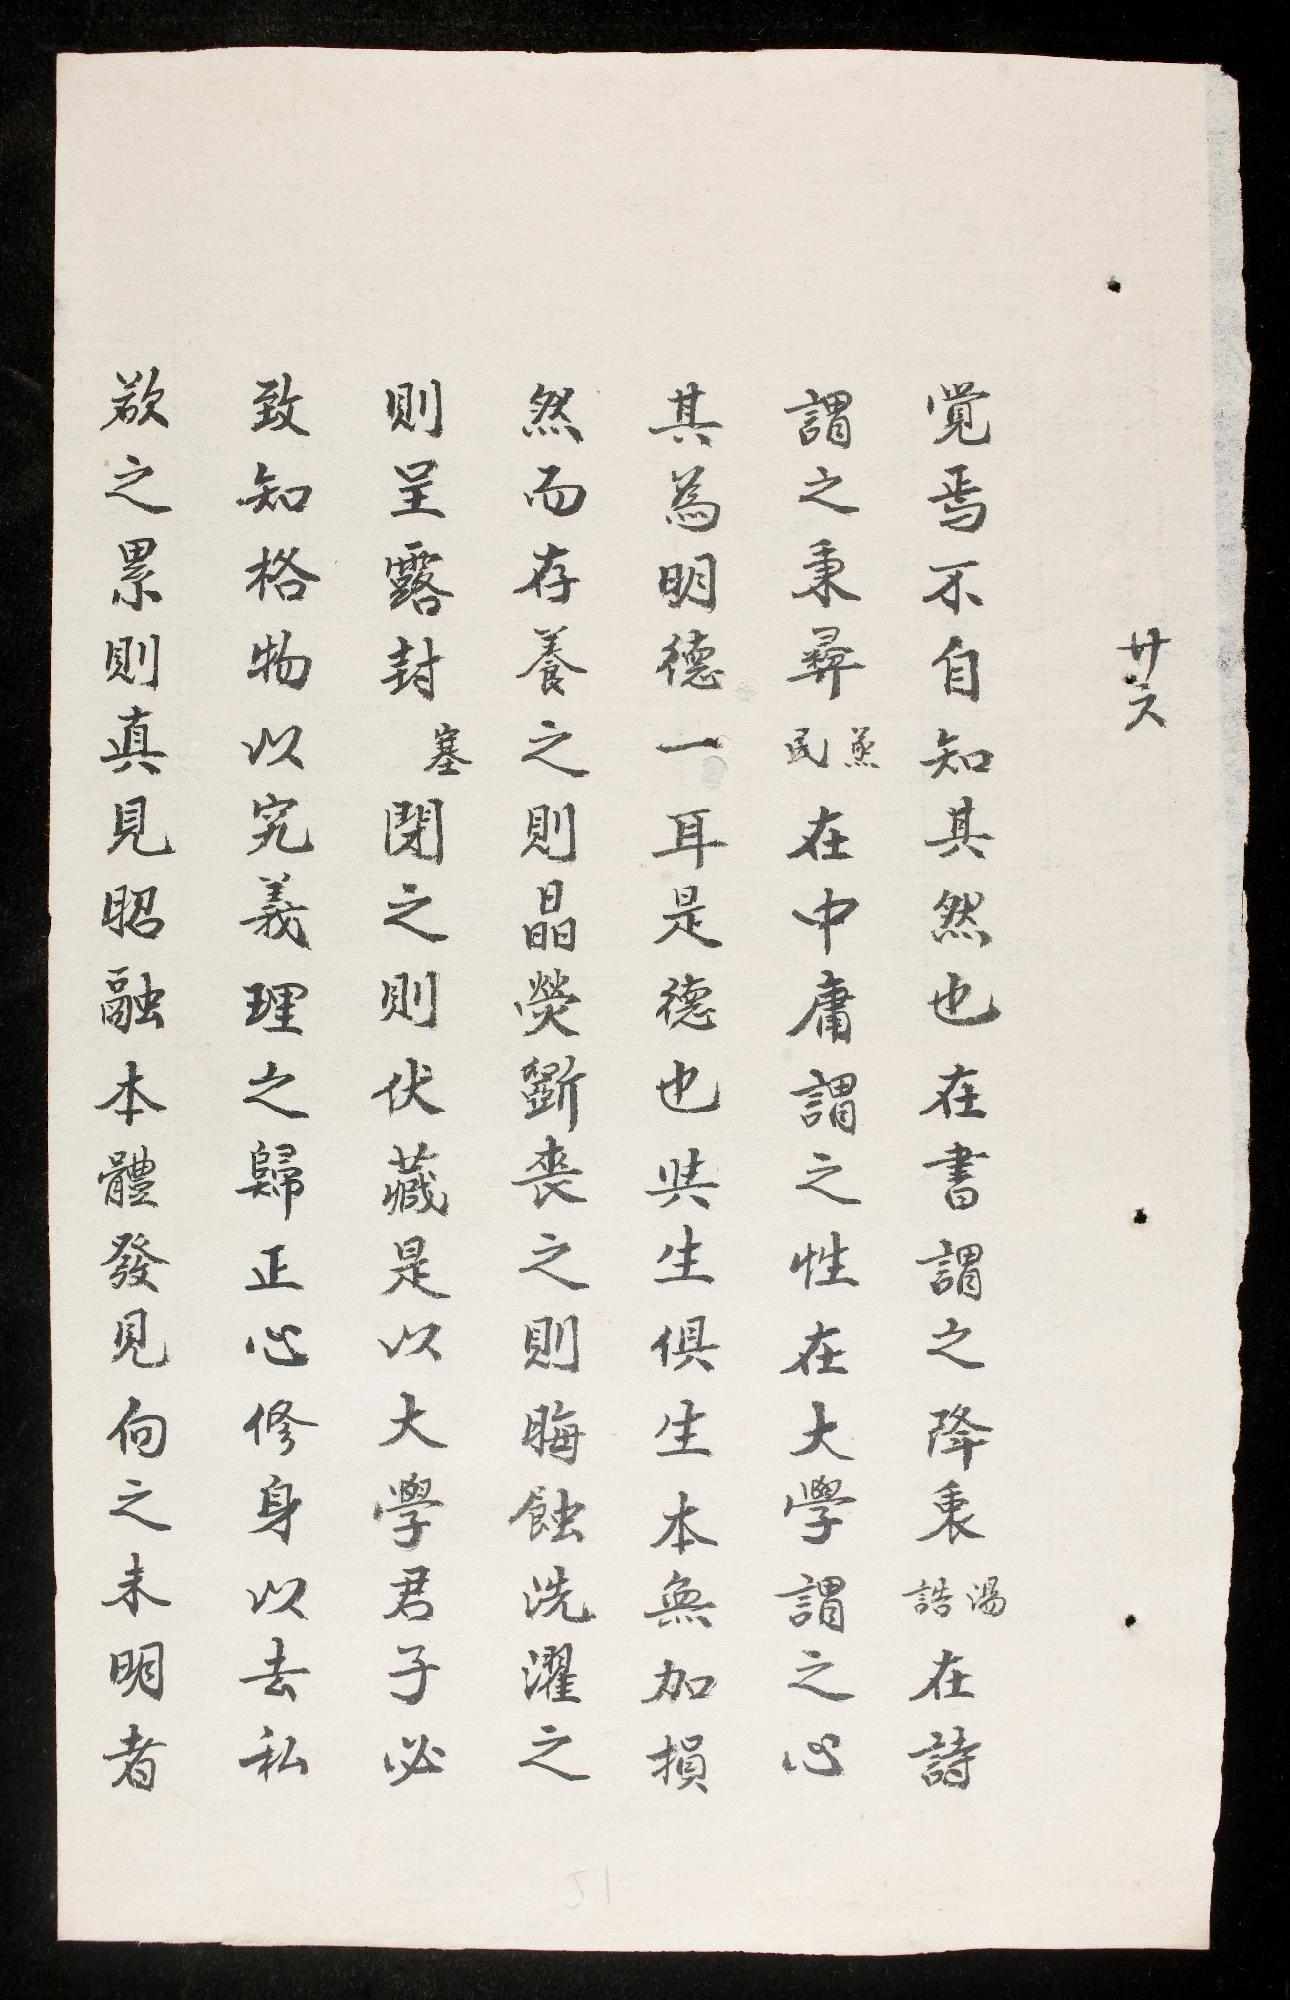 廿六
覺焉不自知其然也在書謂之降衷湯誥在詩
謂之秉彝蒸民在中庸謂之性在大學謂之心
其為明德一耳是德也與生俱生本無加損
然而存養之則晶熒斵喪之則晦蝕洗濯之
則呈露封塞閉之則伏藏是以大學君子必
致知格物以究義理之歸正心修身以去私
欲之累則真見昭融本體發見向之未明者
51